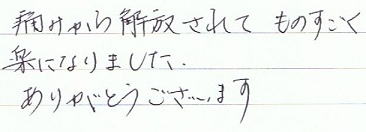 痛みから解放されて ものすごく
楽になりました.
ありがとうございます